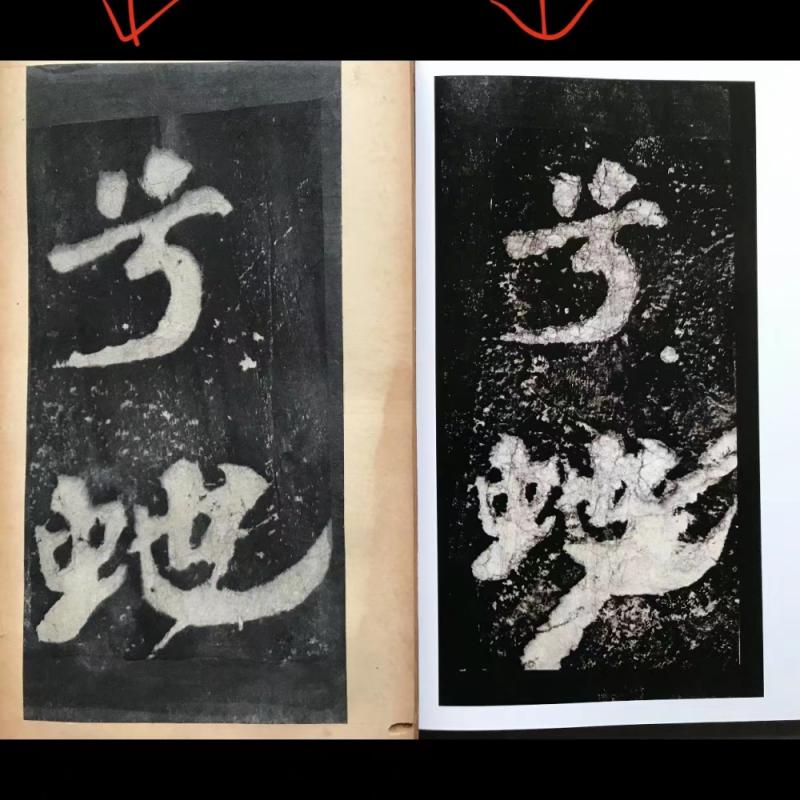 兮
虵
兮
虵